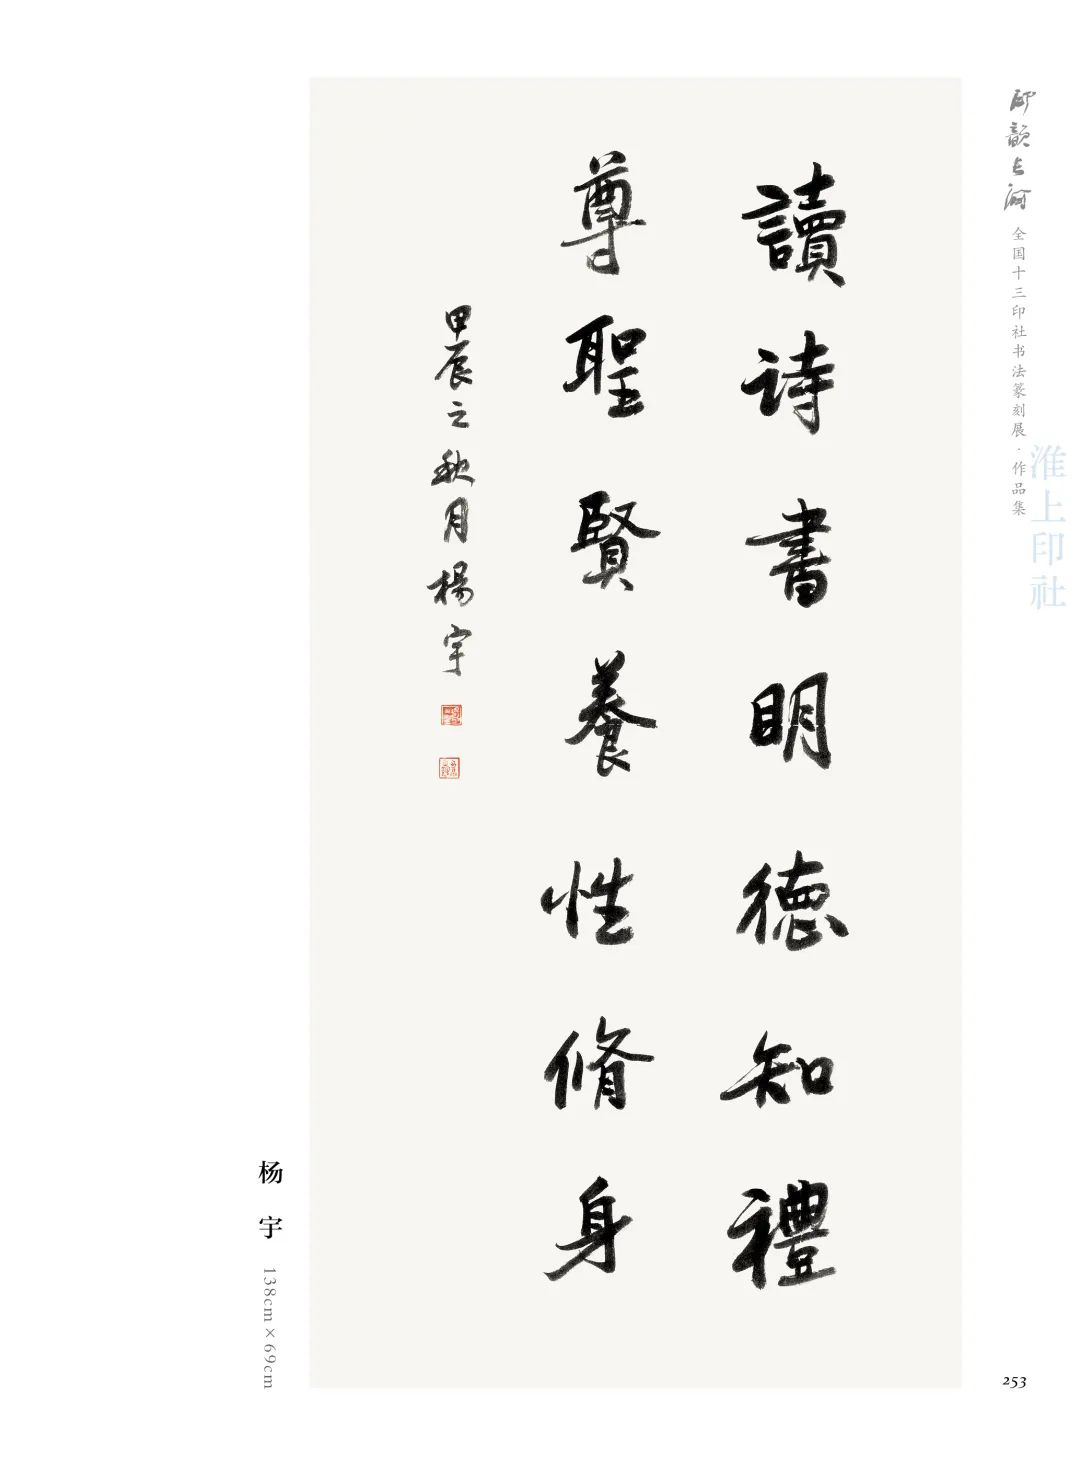 讀诗書明德知禮
尊聖賢養性脩身
甲辰之秋月楊宇
印韻长河
全国十三印社书法篆刻展·作品集
淮上印社
杨宇
138cm×69cm
253